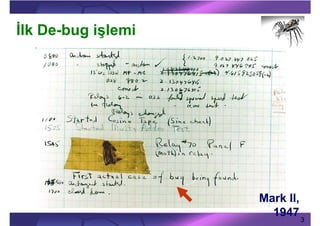 İlk De-bug işlemi
0800 Antan started
1000 " stopped - antan ✓
1.2700 9.037 847 025
9.037 846 995 correct
13" uc (032) MP - MC
4.615925059(-2)
(033) PRO 2 2.130476415
correct 2.130676415
Relays 6-2 in 033 failed special speed test
in relay " test.
Relays changed
1100 Started Cosine Tape (Sine check)
1525 Started Multi Adder Test.
1545 Relay #70 Panel F
(moth) in relay.
First actual case of bug being found.
1630 antangent started.
1700 closed down.
Mark II,
1947
3